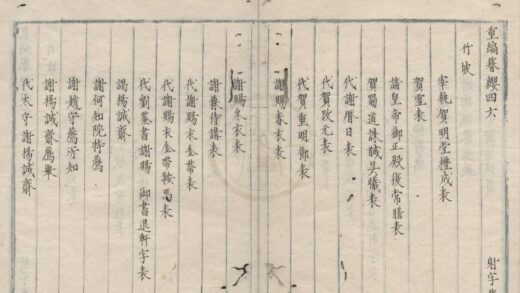 重編簪纓四六
竹坡
宰執賀明堂禮成表
賀雪表
請皇帝御正殿復常膳表
賀蜀道誅誠吳曦表
代謝曆日表
代賀改元表
代賀重明節表
謝賜春衣表
謝賜冬衣表
謝兼侍講表
代謝賜衣金帶表
代謝賜衣金帶鞍馬表
代劉簽書謝賜 御書退軒字表
謁楊誠齋
謝何知院特薦
謝趙守薦所知
謝楊誠齋薦舉
代太守謝楊誠齋
射字